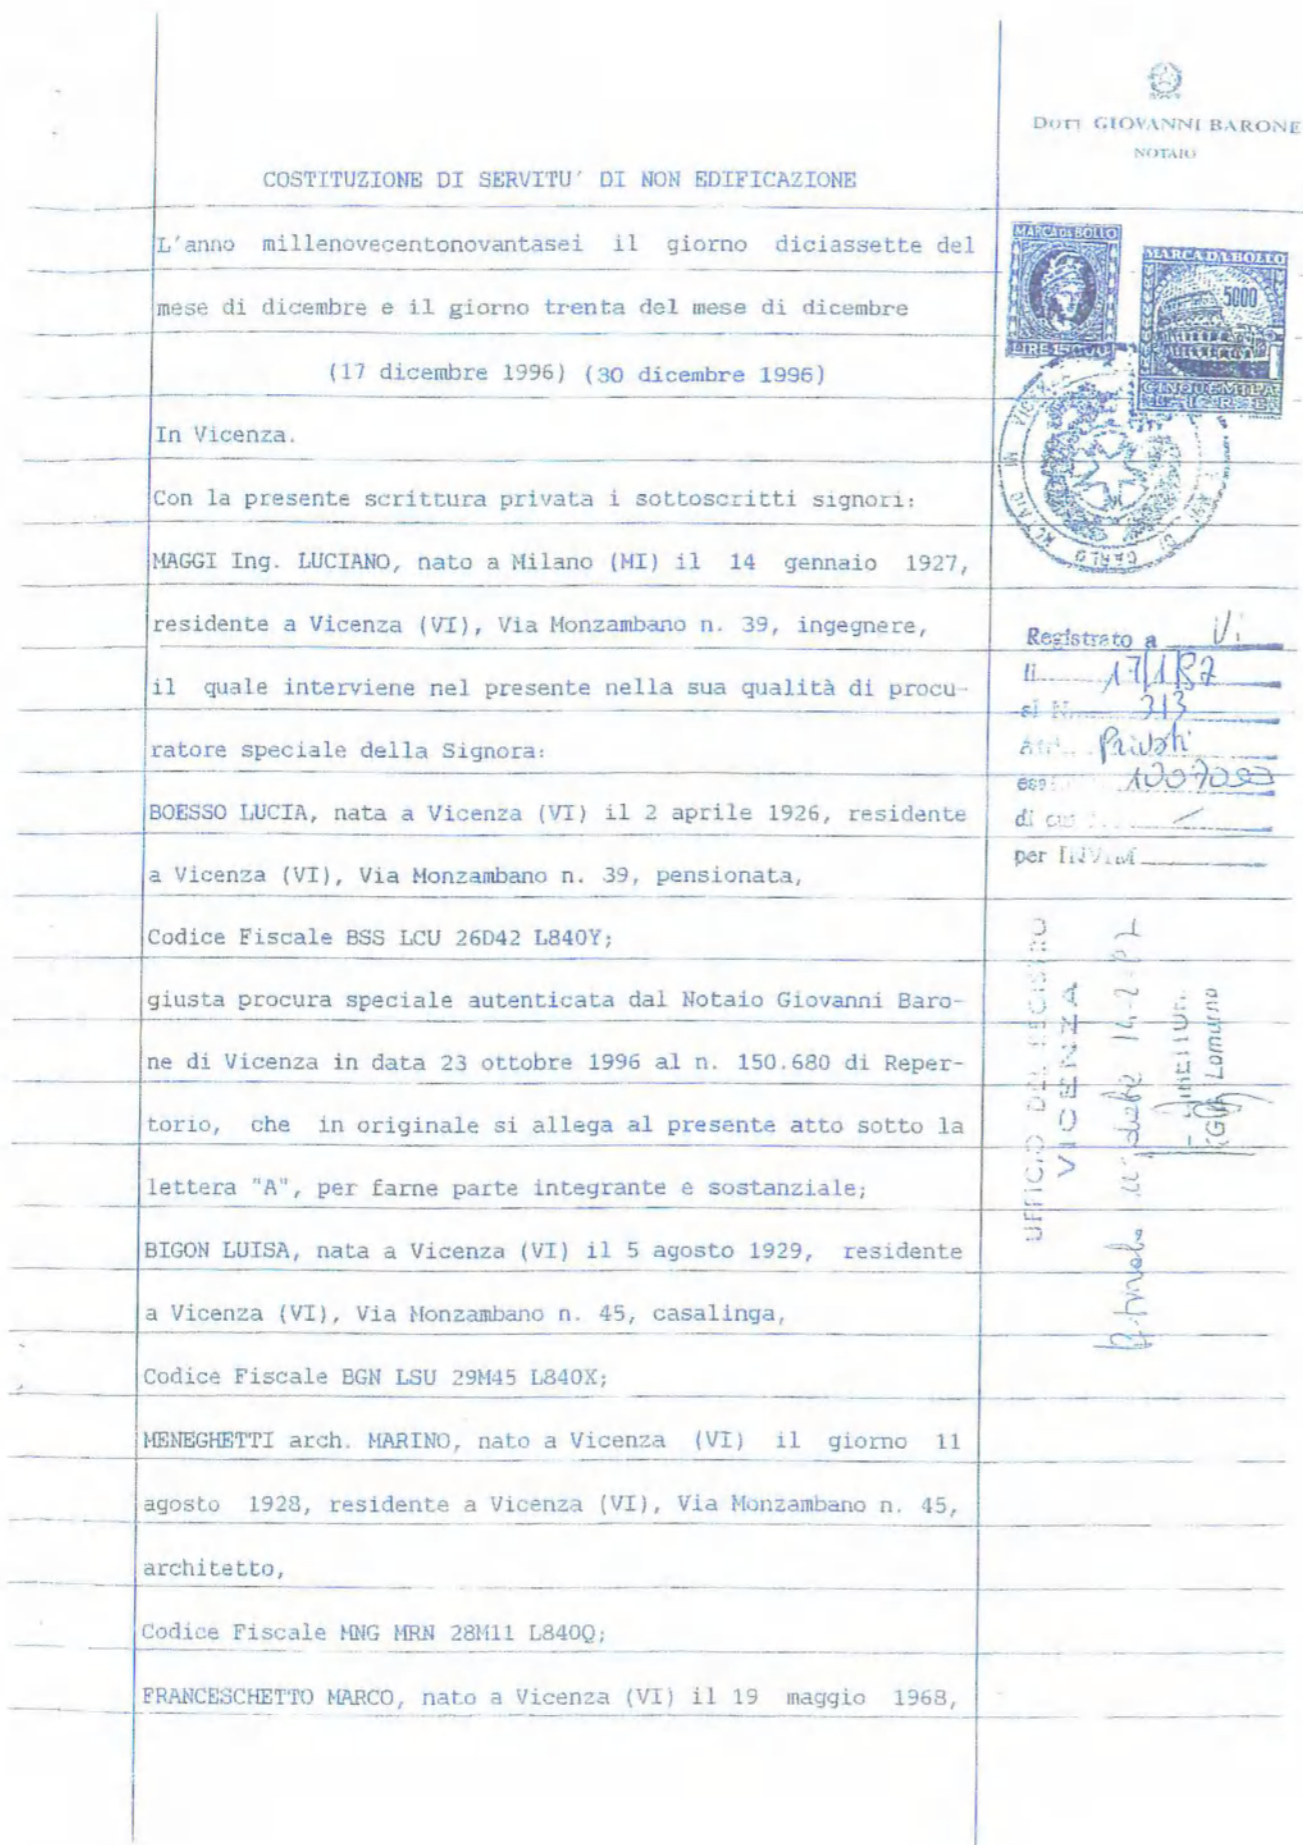 Dott GIOVANNI BARONE
NOTAIO
COSTITUZIONE DI SERVITU' DI NON EDIFICAZIONE
L'anno millenovecentonovantasei il giorno diciassette del
mese di dicembre e il giorno trenta del mese di dicembre
(17 dicembre 1996) (30 dicembre 1996)
In Vicenza.
Con la presente scrittura privata i sottoscritti signori:
MAGGI Ing. LUCIANO, nato a Milano (MI) il 14 gennaio 1927,
residente a Vicenza (VI), Via Monzambano n. 39, ingegnere,
il quale interviene nel presente nella sua qualità di procu-
ratore speciale della Signora:
BOESSO LUCIA, nata a Vicenza (VI) il 2 aprile 1926, residente
a Vicenza (VI), Via Monzambano n. 39, pensionata,
Codice Fiscale BSS LCU 26D42 L840Y;
giusta procura speciale autenticata dal Notaio Giovanni Baro-
ne di Vicenza in data 23 ottobre 1996 al n. 150.680 di Reper-
torio, che in originale si allega al presente atto sotto la
lettera "A", per farne parte integrante e sostanziale;
BIGON LUISA, nata a Vicenza (VI) il 5 agosto 1929, residente
a Vicenza (VI), Via Monzambano n. 45, casalinga,
Codice Fiscale BGN LSU 29M45 L840X;
MENEGHETTI arch. MARINO, nato a Vicenza (VI) il giorno 11
agosto 1928, residente a Vicenza (VI), Via Monzambano n. 45,
architetto,
Codice Fiscale MNG MRN 28M11 L840Q;
FRANCESCHETTO MARCO, nato a Vicenza (VI) il 19 maggio 1968,
MARCA DA BOLLO
LIRE 15000
MARCA DA BOLLO
5000
CINQUEMILA
LIRE
Registrato a Vi
li 17/1/97
al N. 313
Atti Privati
di cui
per INVIM
UFFICIO DEL REGISTRO
VICENZA
Lomurno